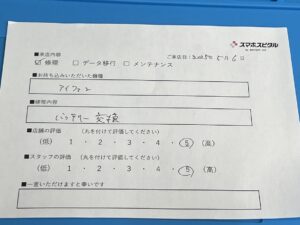 スマホスピタル
■来店内容
ご来店日：2025年 5月 6日
☑ 修理 □ データ移行 □ メンテナンス
■お持ち込みいただいた機種
アイフォン
■修理内容
バッテリー 交換
■店舗の評価 （丸を付けて評価してください）
（低） 1 ・ 2 ・ 3 ・ 4 ・ 5 （高）
■スタッフの評価 （丸を付けて評価してください）
（低） 1 ・ 2 ・ 3 ・ 4 ・ 5 （高）
■一言いただけますと幸いです